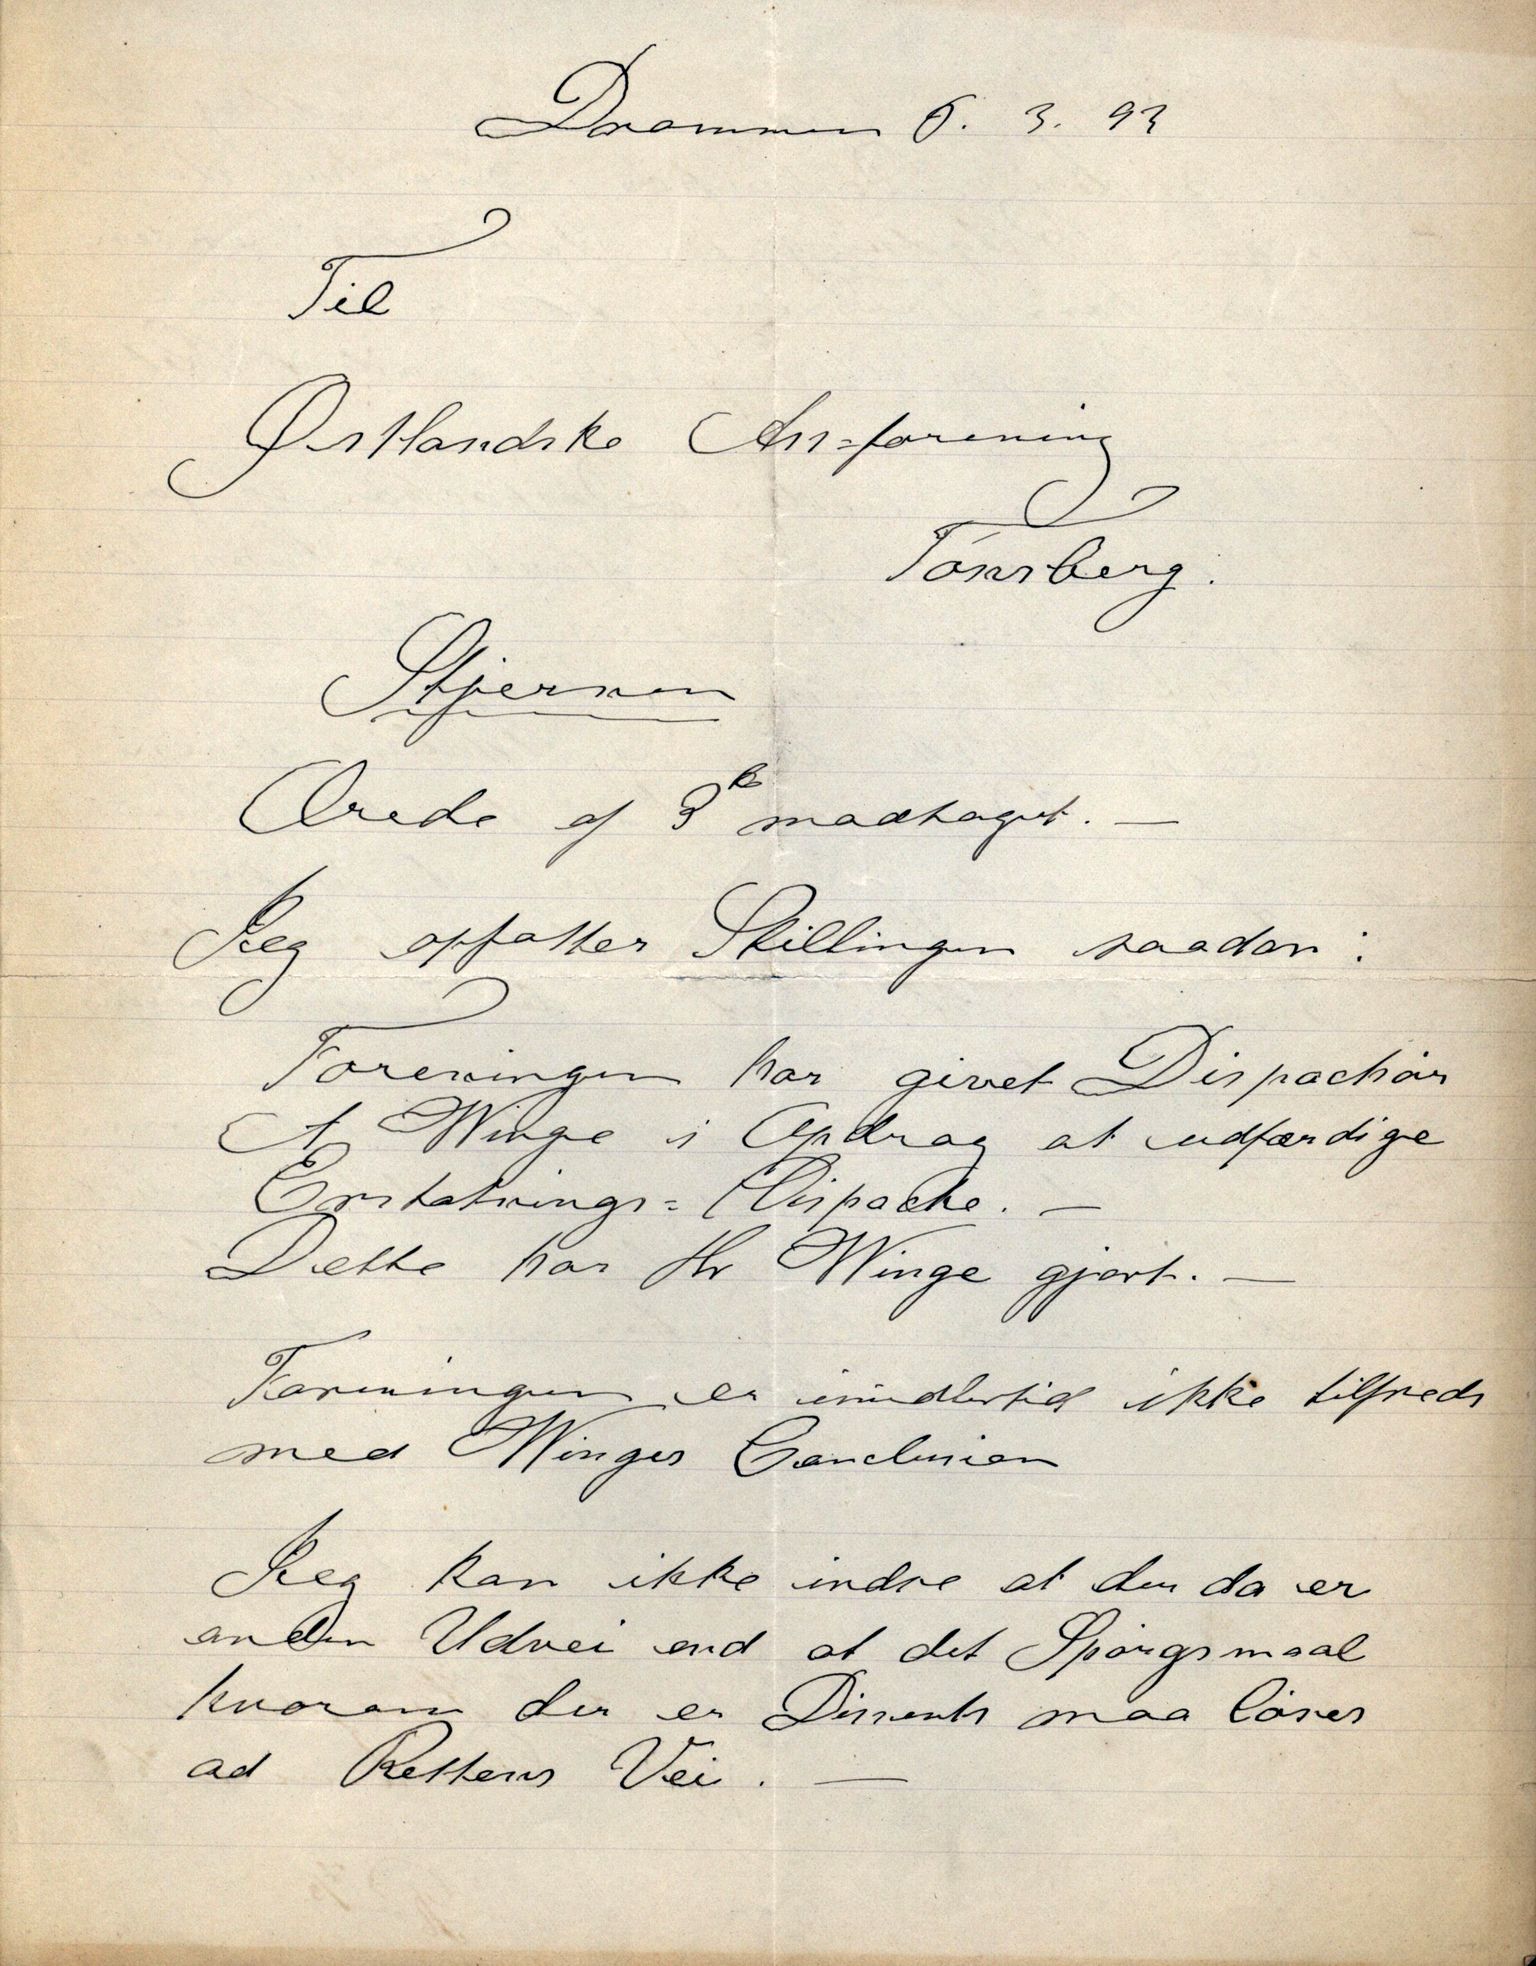 Drammen 6. 3. 93
Til
Østlandske Ass=forening
Tønsberg.
Stjernen
Ærede af 3die modtaget. —
Jeg opfatter Stillingen saadan:
Foreningen har givet Dispachør
A Winge i Opdrag at udfærdige
Erstatnings=Dispache. —
Dette har Hr Winge gjort. —
Foreningen er imidlertid ikke tilfreds
med Winges Conclusion
Jeg kan ikke indse at der da er
anden Udvei end at det Spørgsmaal
hvorom der er Dissents maa løses
ad Rettens Vei. —